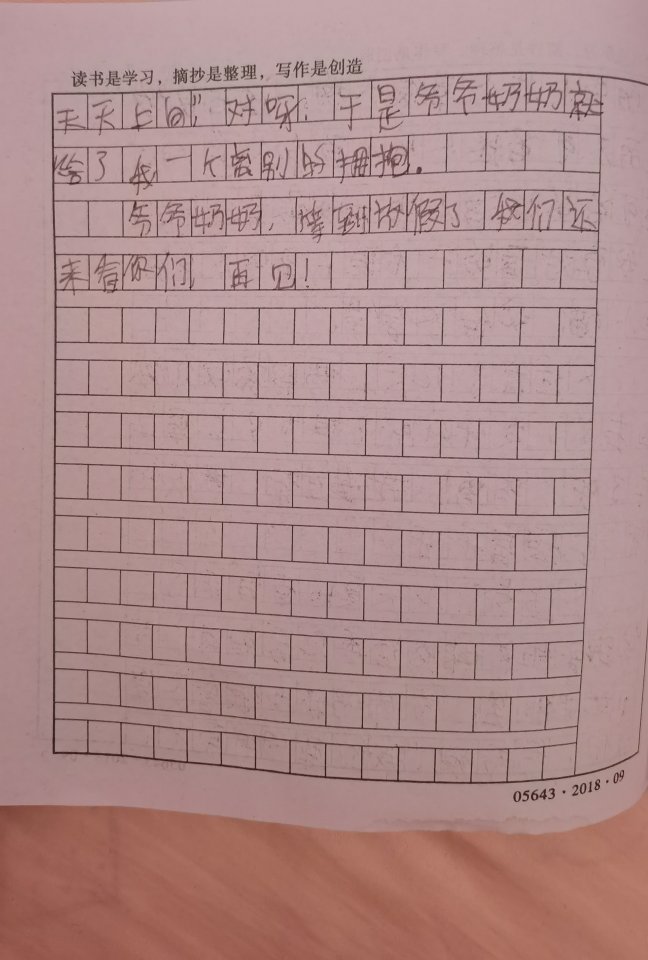 读书是学习，摘抄是整理，写作是创造
天天上自”对呀！于是爷爷奶奶就
给了我一个离别的拥抱。
爷爷奶奶，等到放假了我们还
来看你们，再见！
05643·2018·09